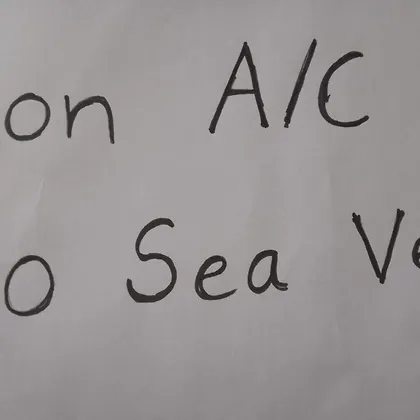 on A/C
o Sea Ve